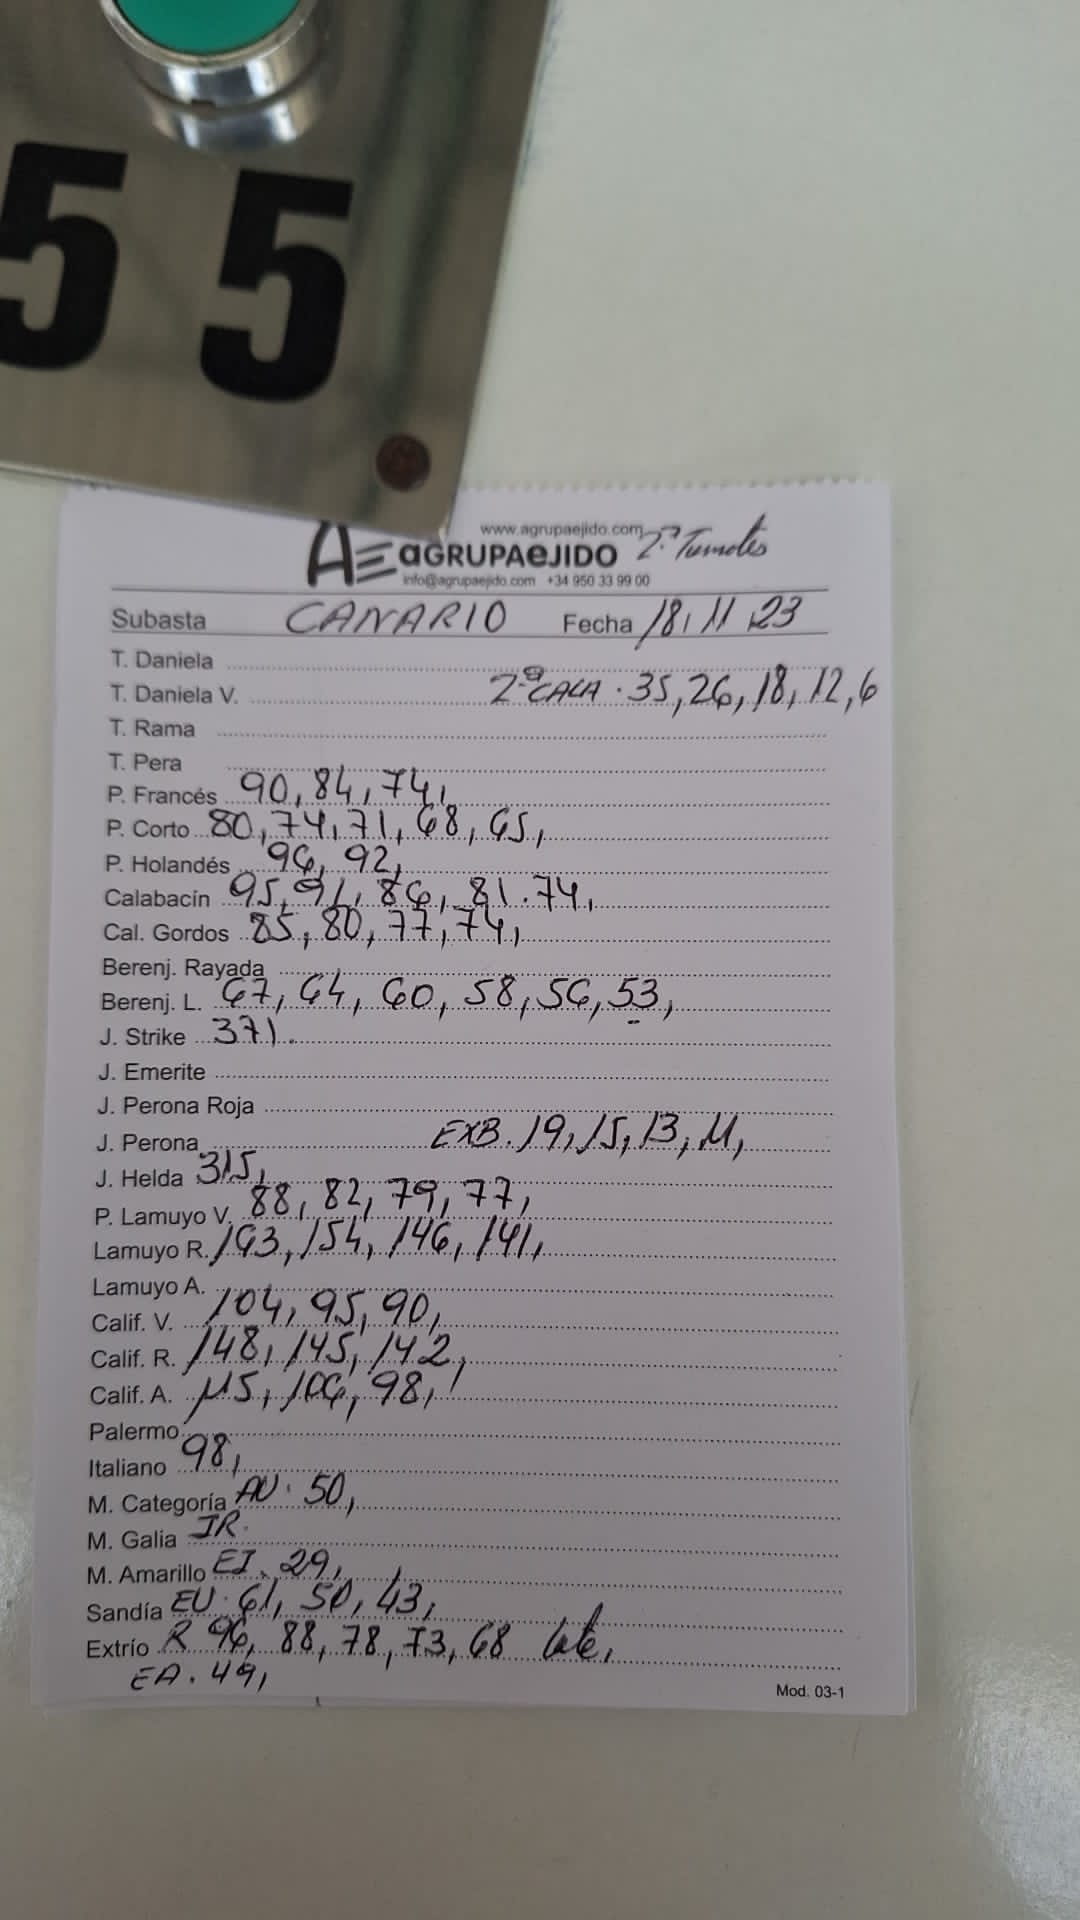 55
www.agrupaejido.com
AGRUPAEJIDO 2.ª Tumotes
info@agrupaejido.com +34 950 33 99 00
Subasta CANARIO Fecha 18, 11, 23
T. Daniela
T. Daniela V. 2ª CALA. 35, 26, 18, 12, 6
T. Rama
T. Pera
P. Francés 90, 84, 74,
P. Corto 80, 74, 71, 68, 65,
P. Holandés 96, 92,
Calabacín 95, 91, 86, 81. 74,
Cal. Gordos 85, 80, 77, 74,
Berenj. Rayada
Berenj. L. 67, 64, 60, 58, 56, 53,
J. Strike 371.
J. Emerite
J. Perona Roja
J. Perona EXB. 19, 15, 13, 11,
J. Helda 315,
P. Lamuyo V. 88, 82, 79, 77,
Lamuyo R. 163, 154, 146, 141,
Lamuyo A.
Calif. V. 104, 95, 90,
Calif. R. 148, 145, 142,
Calif. A. 115, 106, 98,
Palermo
Italiano 98,
M. Categoría AU. 50,
M. Galia IR.
M. Amarillo EI. 29,
Sandía EU. 61, 50, 43,
Extrío R 96, 88, 78, 73, 68
EA. 49,
Mod. 03-1